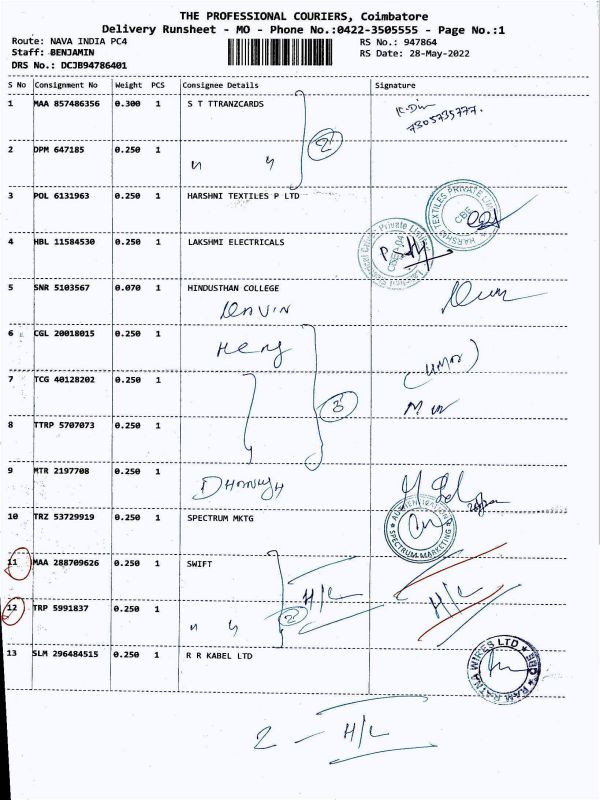 THE PROFESSIONAL COURIERS, Coimbatore
Delivery Runsheet - MO - Phone No.:0422-3505555 - Page No.:1
Route: NAVA INDIA PC4 RS No.: 947864
Staff: BENJAMIN RS Date: 28-May-2022
DRS No.: DCJB94786401
S No Consignment No Weight PCS Consignee Details Signature
1 MAA 857486356 0.300 1 S T TTRANZCARDS
7305735777.
2
2 DPM 647185 0.250 1
3 POL 6131963 0.250 1 HARSHNI TEXTILES P LTD
4 HBL 11584530 0.250 1 LAKSHMI ELECTRICALS
5 SNR 5103567 0.070 1 HINDUSTHAN COLLEGE
6 CGL 20018015 0.250 1
7 TCG 40128202 0.250 1
3
8 TTRP 5707073 0.250 1
9 MTR 2197708 0.250 1
10 TRZ 53729919 0.250 1 SPECTRUM MKTG
SPECTRUM MARKETING
11 MAA 288709626 0.250 1 SWIFT
H/L H/L
12 TRP 5991837 0.250 1
2
13 SLM 296484515 0.250 1 R R KABEL LTD
RAM RATNA WIRES LTD
2 - H/L